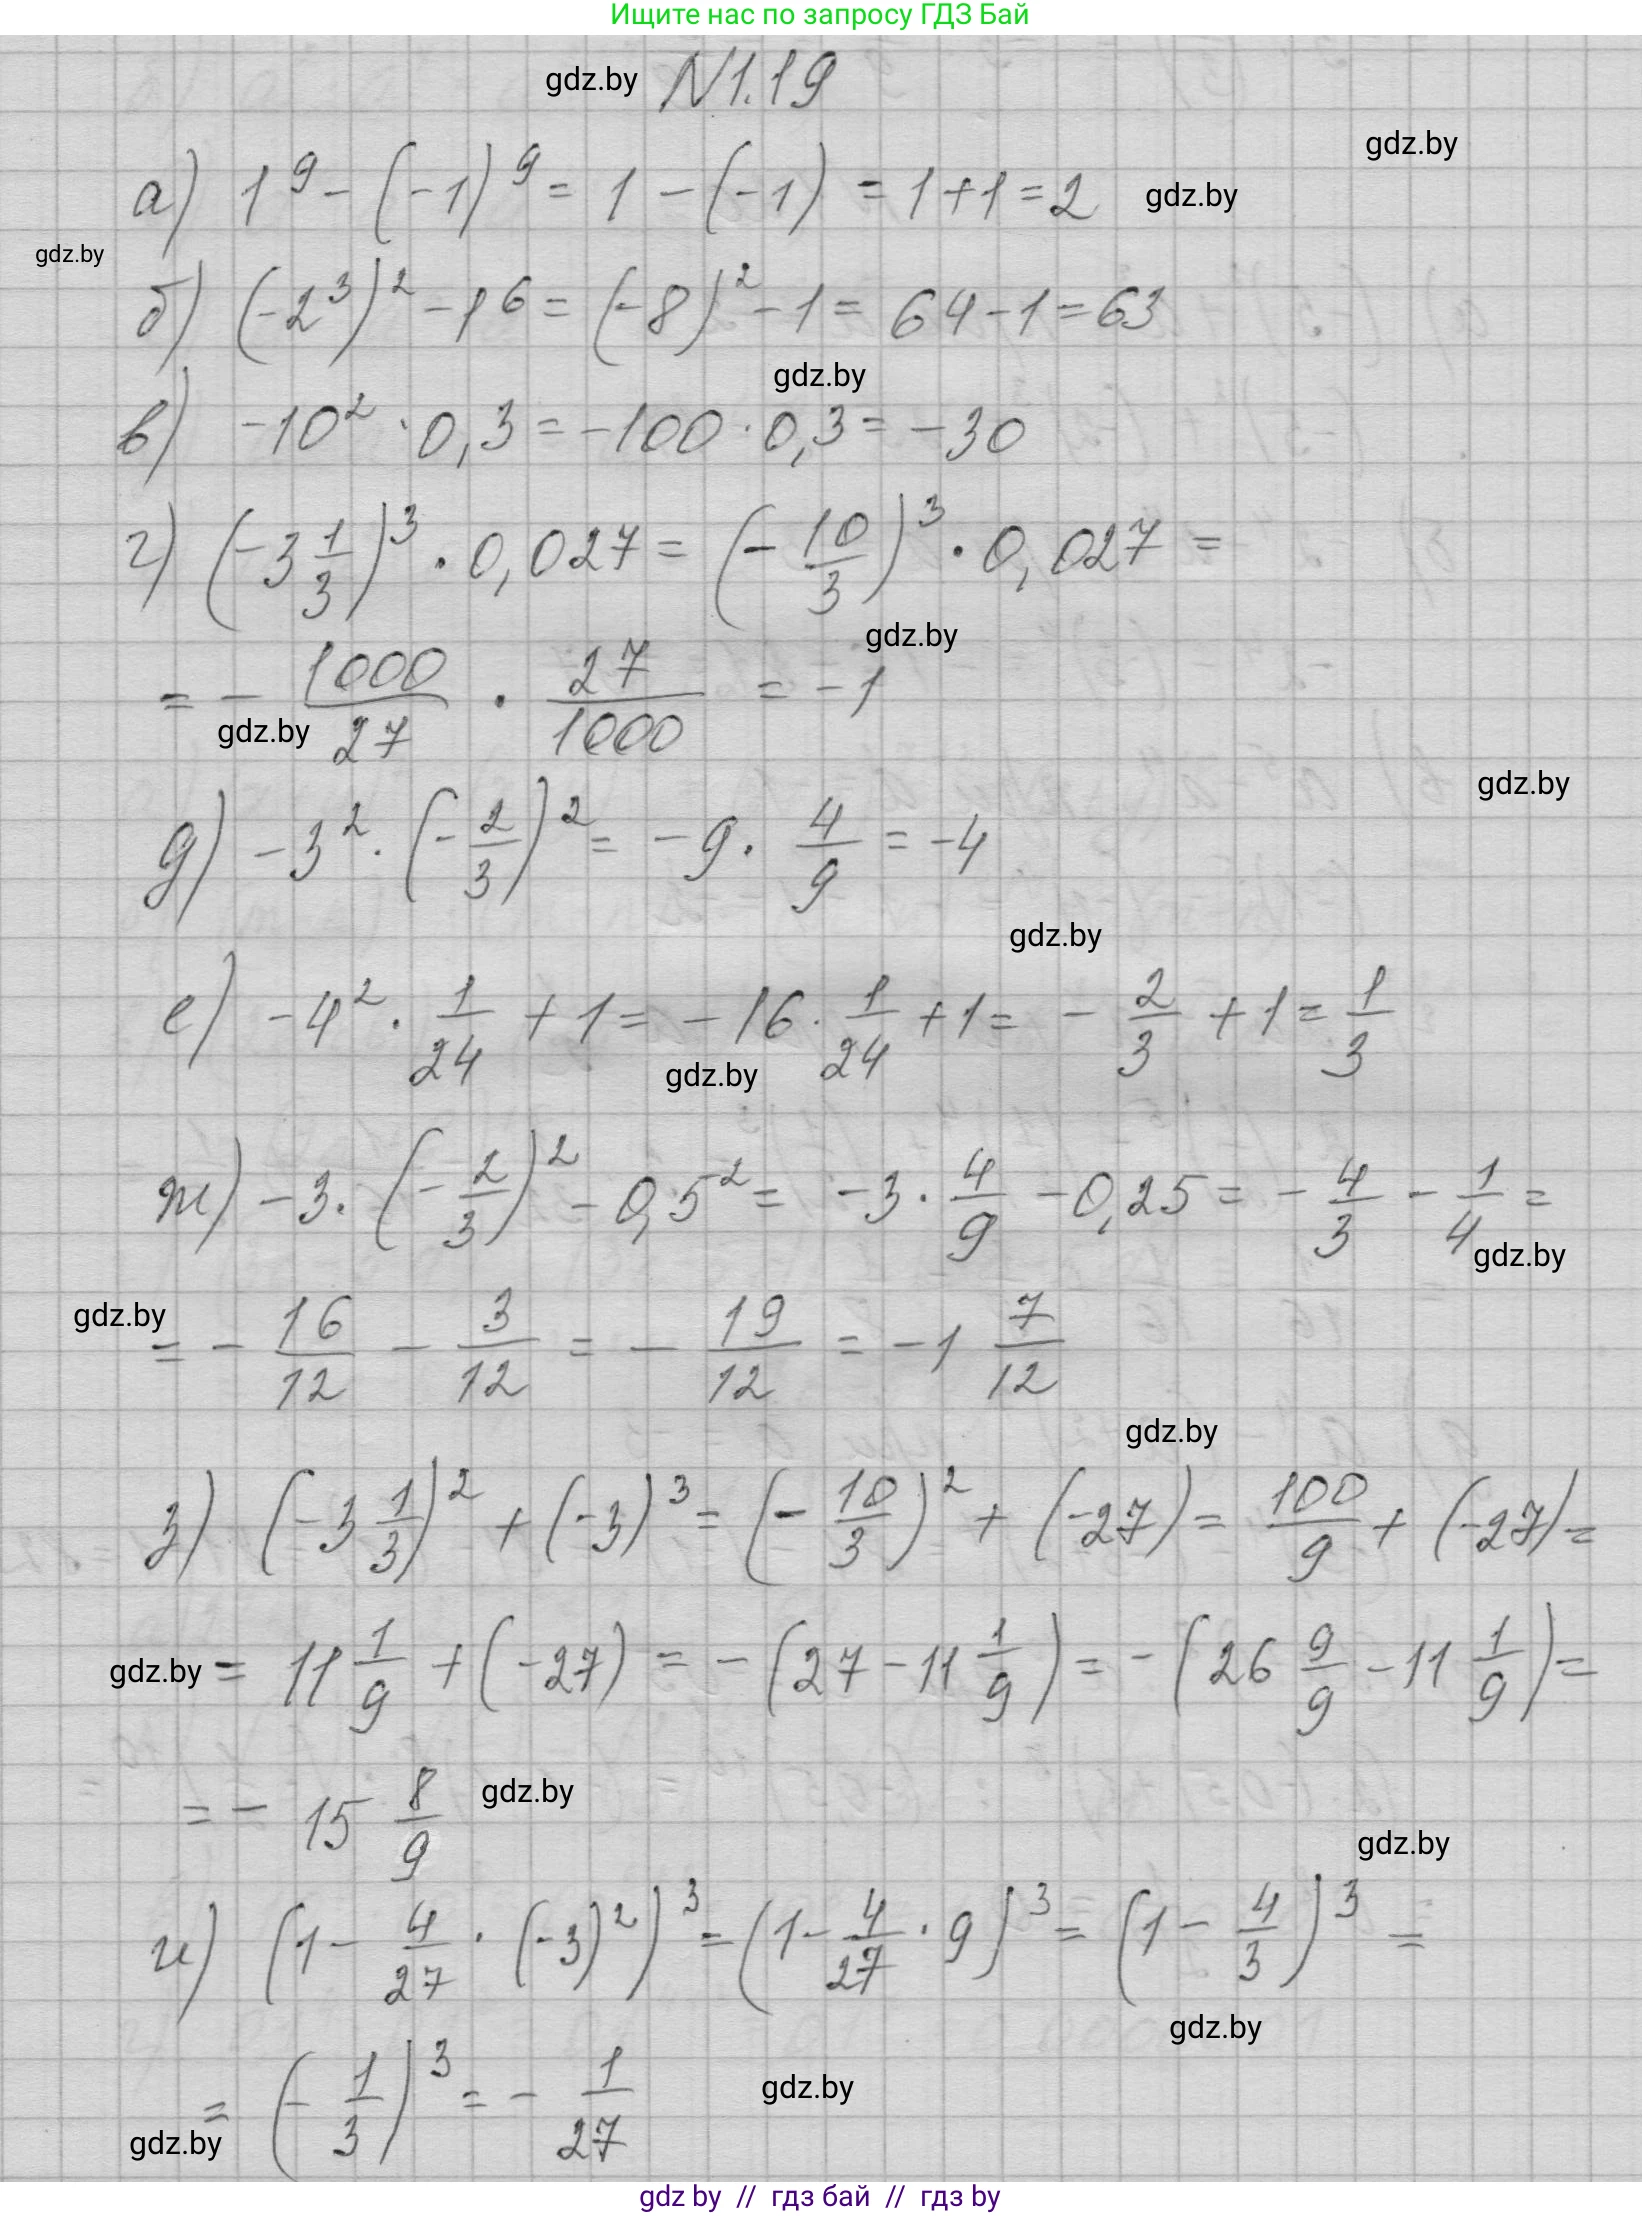 Ищите нас по запросу ГДЗ Бай
gdz.by N1.19
gdz.by
а) 1^9 - (-1)^9 = 1 - (-1) = 1+1=2 gdz.by
gdz.by
б) (-2^3)^2 - 1^6 = (-8)^2 - 1 = 64-1=63
gdz.by
в) -10^2 · 0,3 = -100 · 0,3 = -30
г) (-3 1/3)^3 · 0,027 = (-10/3)^3 · 0,027 =
gdz.by
= - 1000/27 · 27/1000 = -1
gdz.by
gdz.by
д) -3^2 · (-2/3)^2 = -9 · 4/9 = -4
gdz.by
е) -4^2 · 1/24 + 1 = -16 · 1/24 + 1 = - 2/3 + 1 = 1/3
gdz.by
ж) -3 · (-2/3)^2 - 0,5^2 = -3 · 4/9 - 0,25 = - 4/3 - 1/4 =
gdz.by
gdz.by
= - 16/12 - 3/12 = - 19/12 = -1 7/12
gdz.by
з) (-3 1/3)^2 + (-3)^3 = (-10/3)^2 + (-27) = 100/9 + (-27) =
gdz.by = 11 1/9 + (-27) = -(27 - 11 1/9) = -(26 9/9 - 11 1/9) =
= - 15 8/9 gdz.by
gdz.by
и) (1 - 4/27 · (-3)^2)^3 = (1 - 4/27 · 9)^3 = (1 - 4/3)^3 =
gdz.by
= (-1/3)^3 = - 1/27 gdz.by
gdz.by
gdz by // гдз бай // гдз by